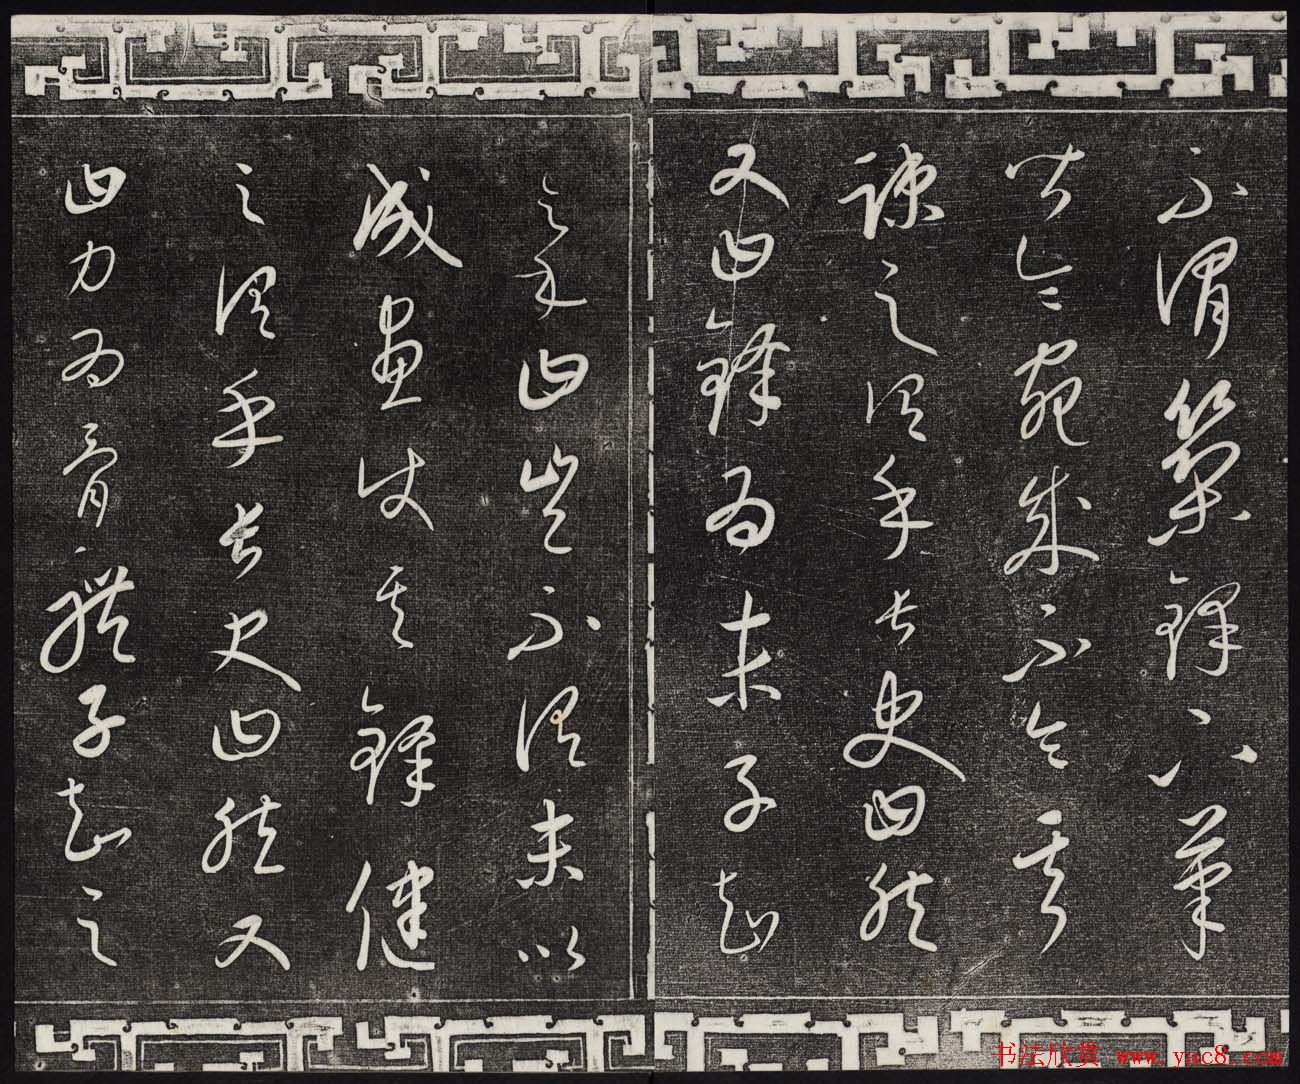 不謂築鋒下筆
皆令宛成不令其
疎之謂乎長史曰然
又曰鋒為末子知
之乎曰豈不謂末以
成畫使其鋒健
之謂乎長史曰然又
曰力為骨體子知之
书法欣赏 www.yac8.com